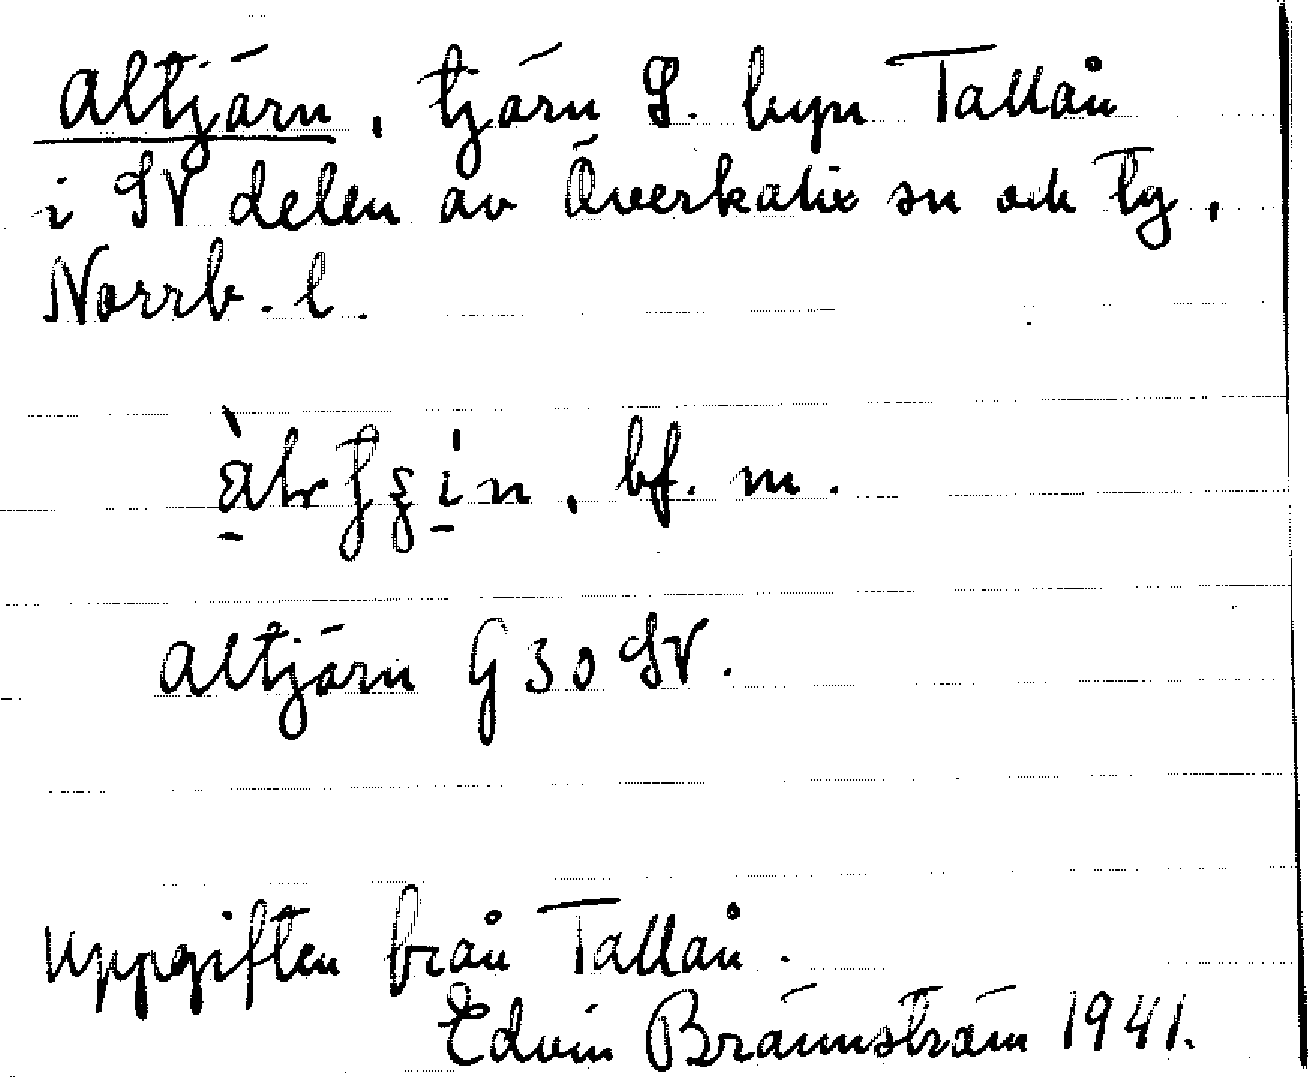 Altjärn, tjärn S. byn Tallån
i SV delen av Överkalix sn och tg,
Norrb. l.
bf. m.
Altjärn G 30 SV.
Uppgiften från Tallån.
Edvin Brännström 1941.